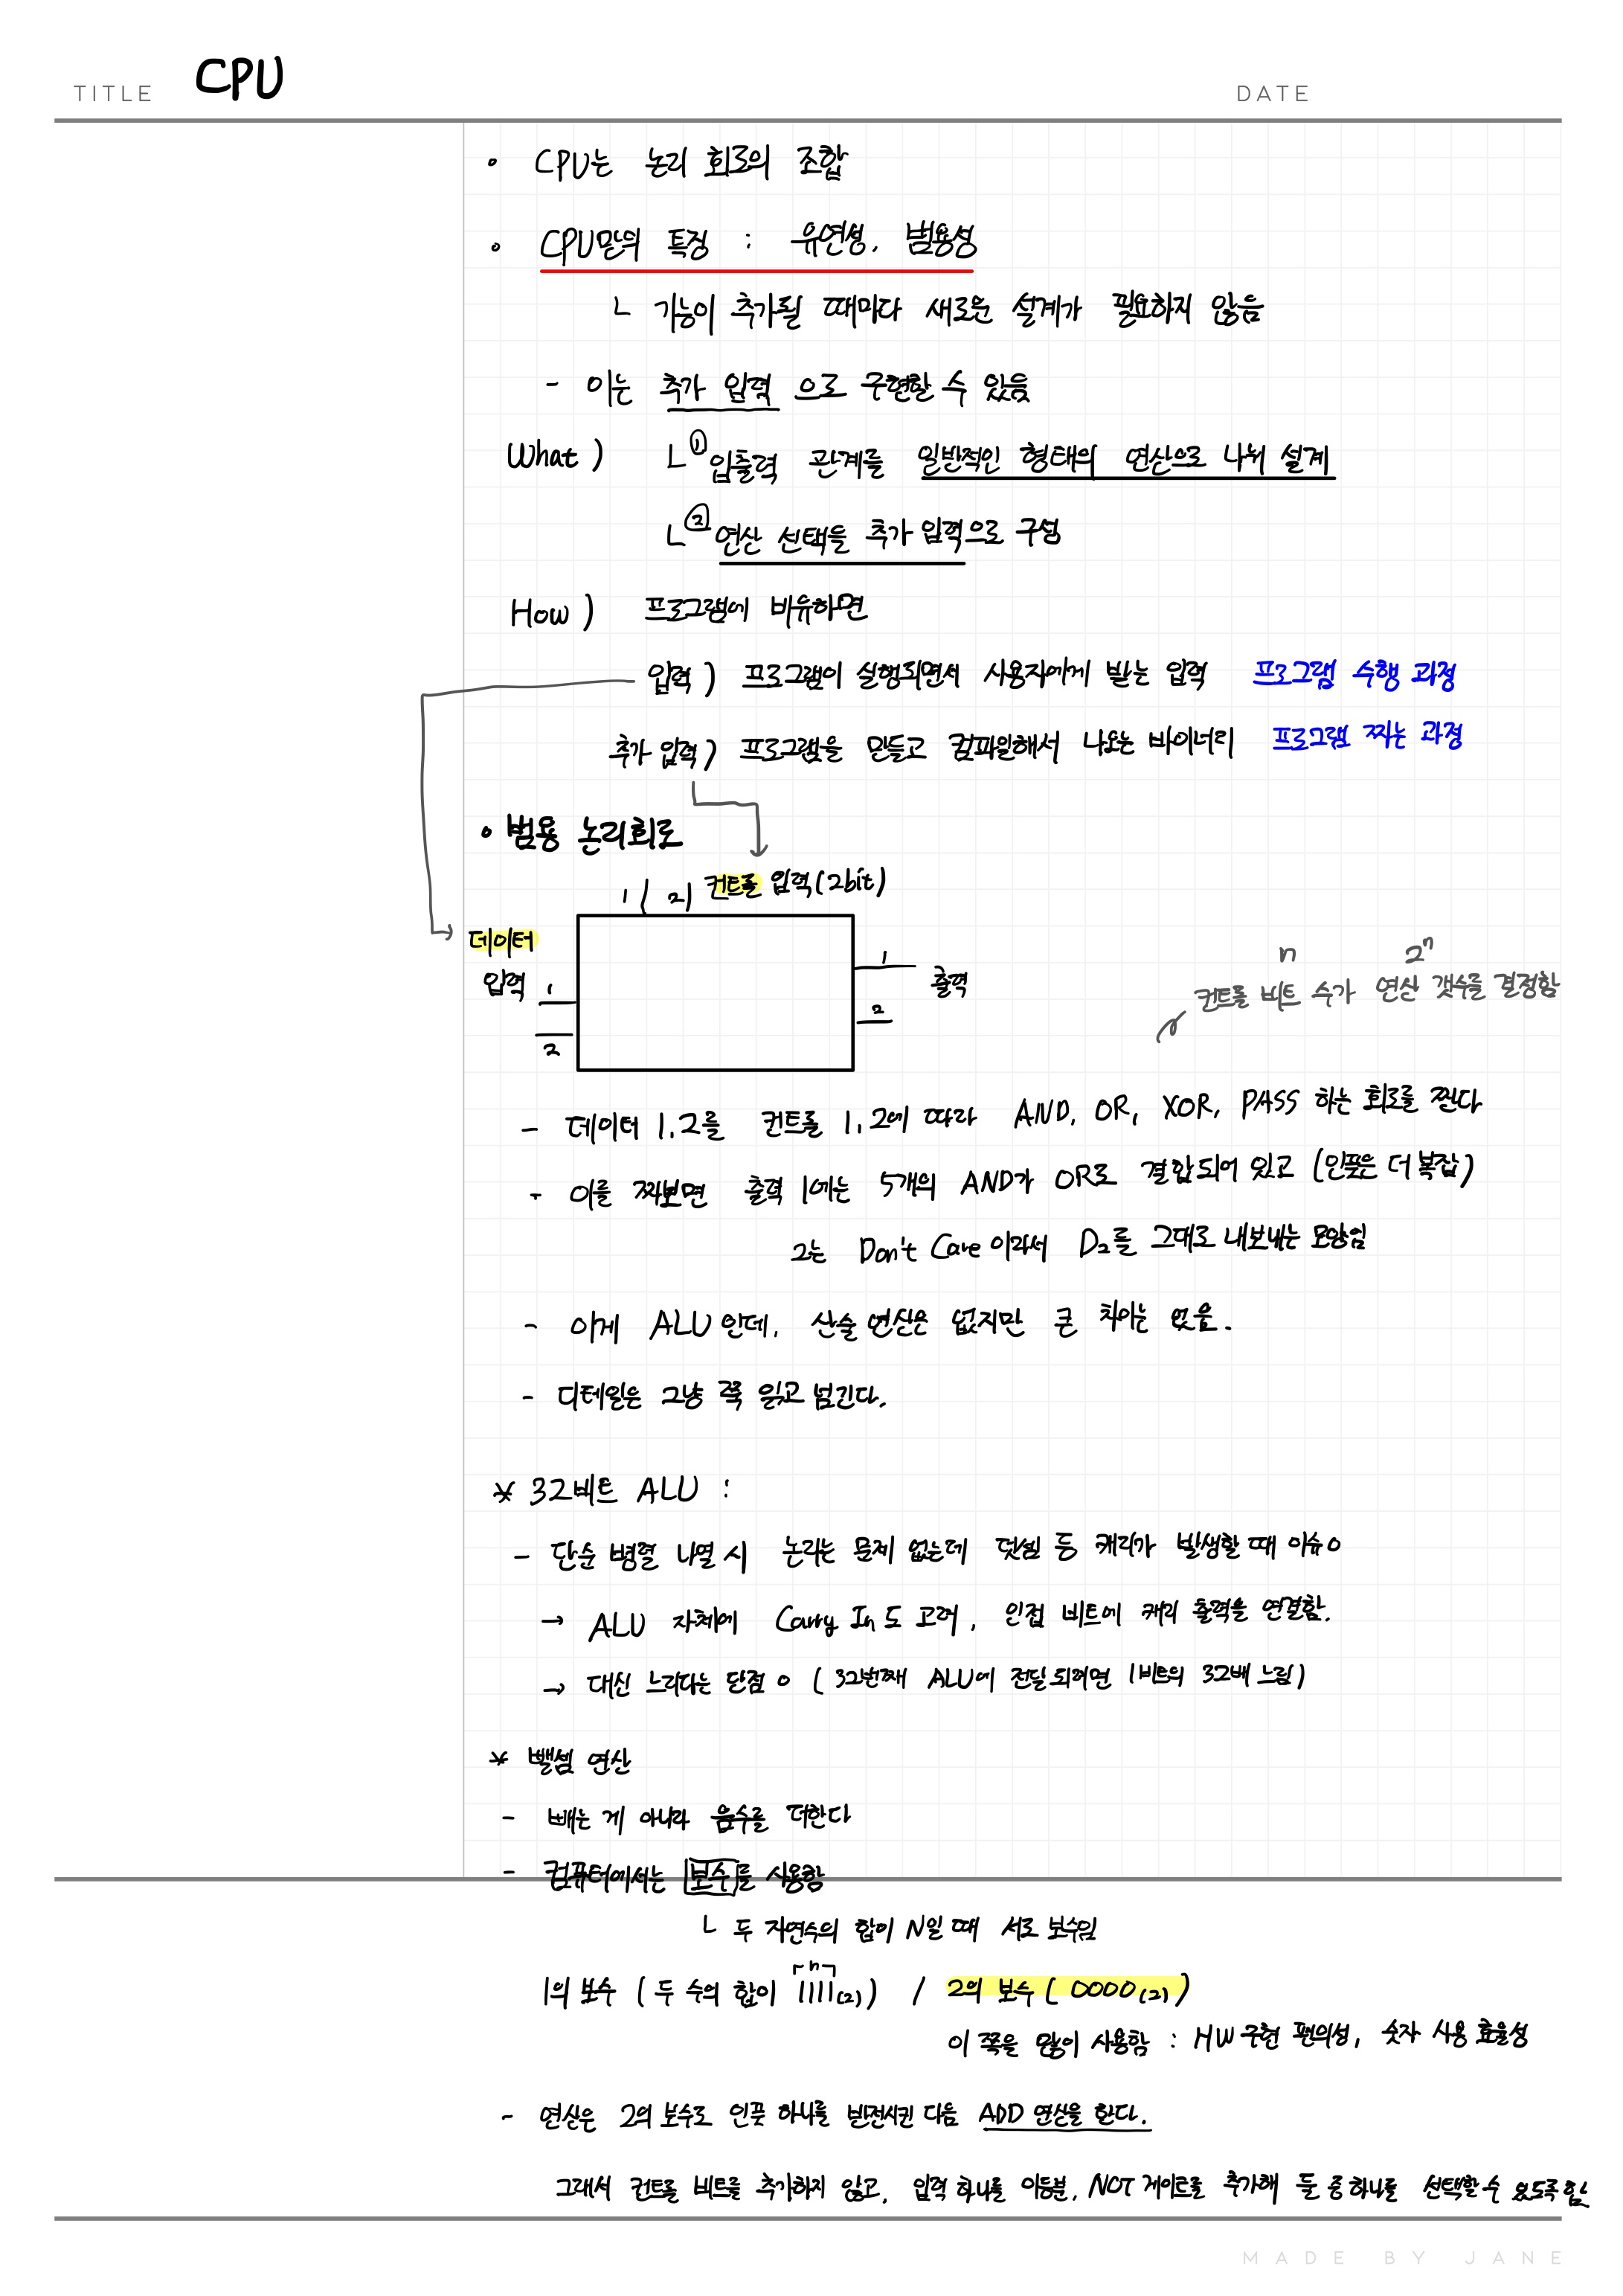 TITLE CPU DATE
• CPU는 논리 회로의 조합
• CPU만의 특징 : 유연성, 범용성
ㄴ 기능이 추가될 때마다 새로운 설계가 필요하지 않음
- 이는 추가 입력 으로 구현할 수 있음
What ) ㄴ ① 입출력 관계를 일반적인 형태의 연산으로 나눠 설계
ㄴ ② 연산 선택을 추가 입력으로 구성
How ) 프로그램에 비유하면
입력 ) 프로그램이 실행되면서 사용자에게 받는 입력 프로그램 수행 과정
추가 입력 ) 프로그램을 만들고 컴파일해서 나오는 바이너리 프로그램 짜는 과정
• 범용 논리회로
1 2 컨트롤 입력(2bit)
데이터
입력 1
2
1 출력
2
n 2ⁿ
컨트롤 비트 수가 연산 갯수를 결정함
- 데이터 1,2를 컨트롤 1,2에 따라 AND, OR, XOR, PASS 하는 회로를 짠다
- 이를 짜보면 출력 1에는 5개의 AND가 OR로 결합되어 있고 (인풋은 더 복잡)
2는 Don't Care 이라서 D₂를 그대로 내보내는 모양임
- 이게 ALU 인데, 산술 연산은 없지만 큰 차이는 없음.
- 디테일은 그냥 쭉 읽고 넘긴다.
* 32비트 ALU :
- 단순 병렬 나열 시 논리는 문제 없는데 덧셈 등 캐리가 발생할 때 이슈 o
→ ALU 자체에 Carry In 도 고려, 인접 비트에 캐리 출력을 연결함.
→ 대신 느리다는 단점 o ( 32번째 ALU에 전달되려면 1비트의 32배 느림 )
* 뺄셈 연산
- 빼는 게 아니라 음수를 더한다
- 컴퓨터에서는 보수를 사용함
ㄴ 두 자연수의 합이 N일 때 서로 보수임
n
1의 보수 ( 두 수의 합이 1111(2) ) / 2의 보수 ( 0000(2) )
이 쪽을 많이 사용함 : HW 구현 편의성, 숫자 사용 효율성
- 연산은 2의 보수로 인풋 하나를 반전시킨 다음 ADD 연산을 한다.
그래서 컨트롤 비트를 추가하지 않고, 입력 하나를 이등분, NOT 게이트를 추가해 둘 중 하나를 선택할 수 있도록 함
MADE BY JANE